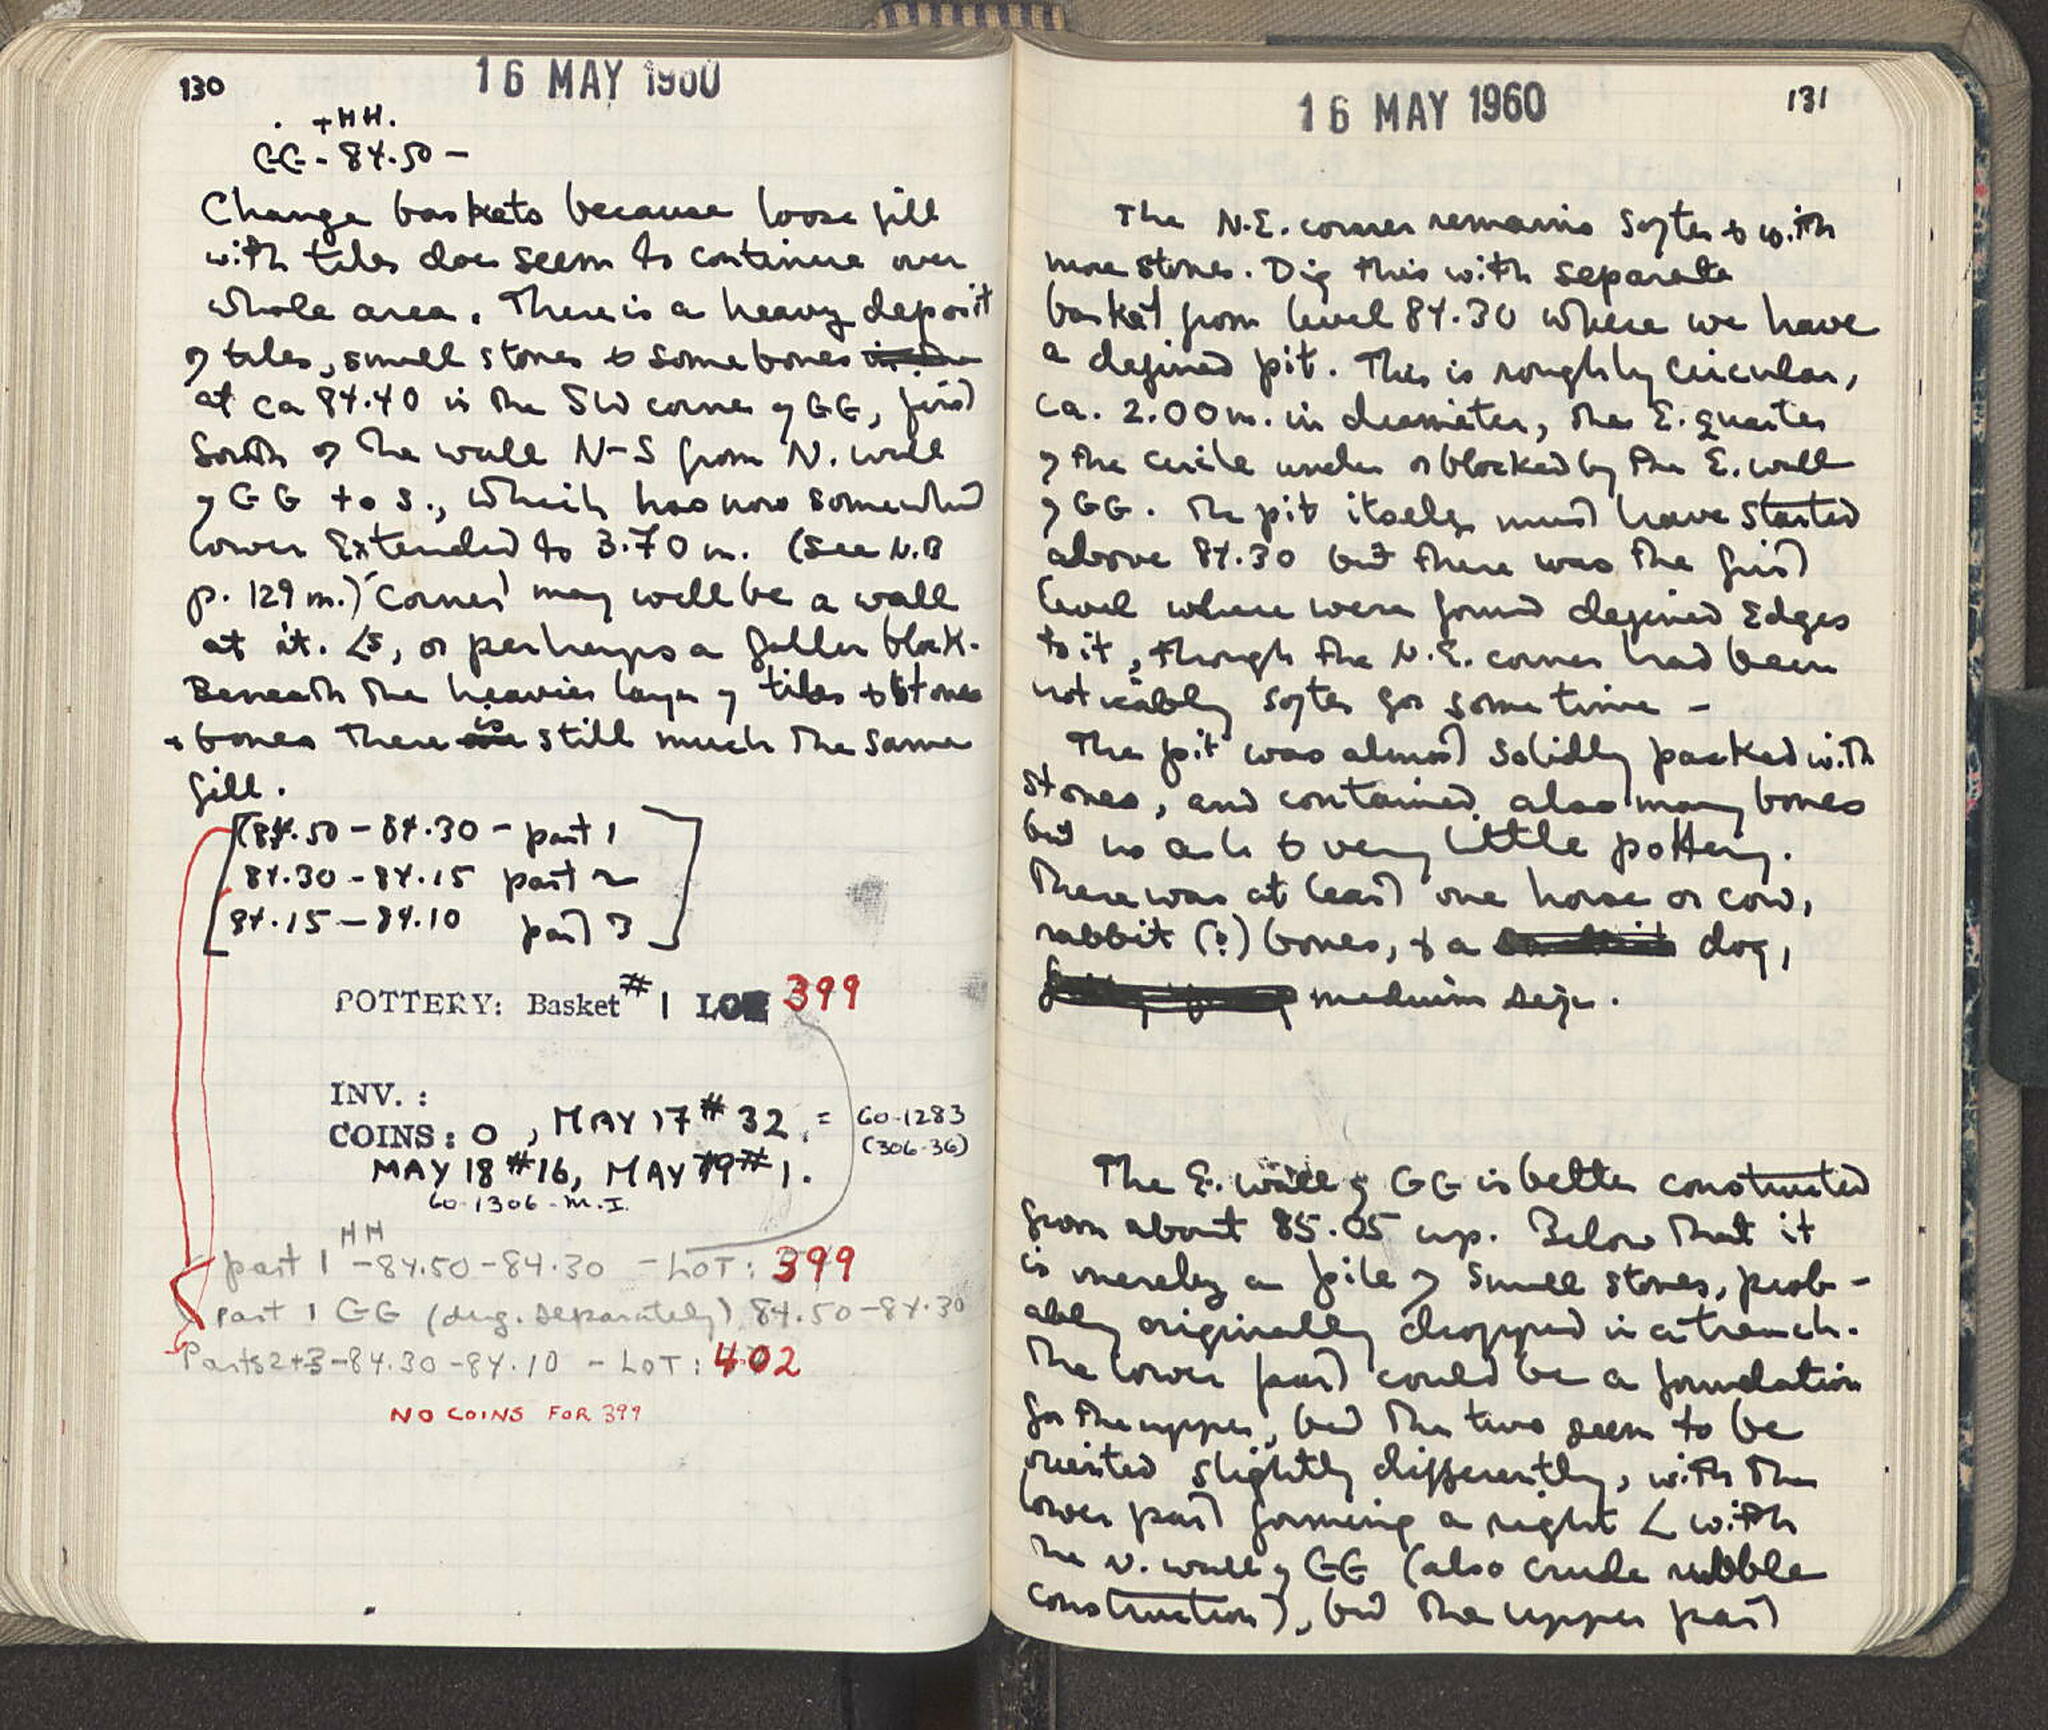 130
16 MAY 1960
+HH.
GG - 84.50 -
Change baskets because loose fill
with tiles does seem to continue over
whole area. There is a heavy deposit
of tiles, small stones & some bones
at ca 84.40 in the SW corner of GG, just
South of the wall N-S from N. wall
of GG to S., which has now somewhat
lower extended to 3.70 m. (see N.B
p. 129 m.) 'Corner' may well be a wall
at rt. ∠s, or perhaps a fallen block.
Beneath the heavier layer of tiles & stones
& bones there is still much the same
fill.
[(84.50 - 84.30 - part 1
84.30 - 84.15 part 2
84.15 - 84.10 part 3]
POTTERY: Basket # 1 LOT 399
INV. :
COINS: 0, MAY 17 # 32. = 60-1283
(306-36)
MAY 18 #16, MAY 19 # 1.
60-1306 - M.I.
HH
part 1 - 84.50 - 84.30 - LOT: 399
part 1 GG (dug. separately) 84.50 - 84.30
Parts 2+3 - 84.30 - 84.10 - LOT: 402
NO COINS FOR 399
131
16 MAY 1960
The N.E. corner remains softer & with
more stones. Dig this with separate
basket from level 84.30 where we have
a defined pit. This is roughly circular,
ca. 2.00 m. in diameter, the E. quarter
of the circle under or blocked by the E. wall
of GG. The pit itself must have started
above 84.30 but there was the first
level where were found defined edges
to it, though the N.E. corner had been
noticably softer for some time -
The pit was almost solidly packed with
stones, and contained also many bones
but no ash & very little pottery.
There was at least one horse or cow,
rabbit (?) bones, & a dog,
medium size.
The E. wall of GG is better constructed
from about 85.05 up. Below that it
is merely a pile of small stones, prob-
ably originally dropped in a trench.
The lower part could be a foundation
for the upper, but the two seem to be
oriented slightly differently, with the
lower part forming a right ∠ with
the N. wall of GG (also crude rubble
construction), but the upper part